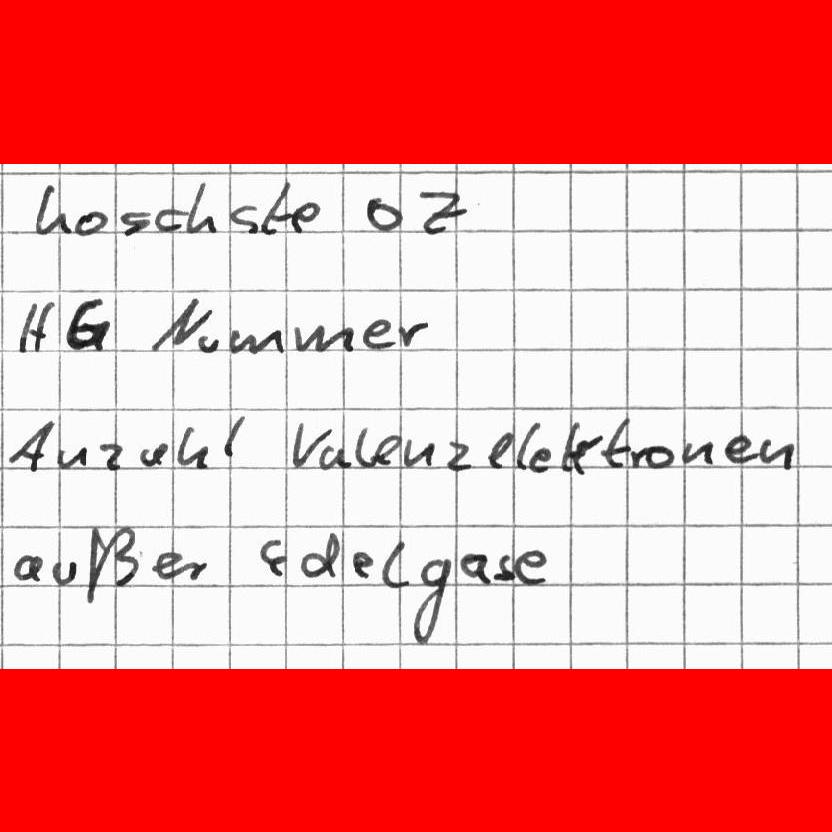 hoschste OZ
HG Nummer
Anzahl Valenzelektronen
außer Edelgase